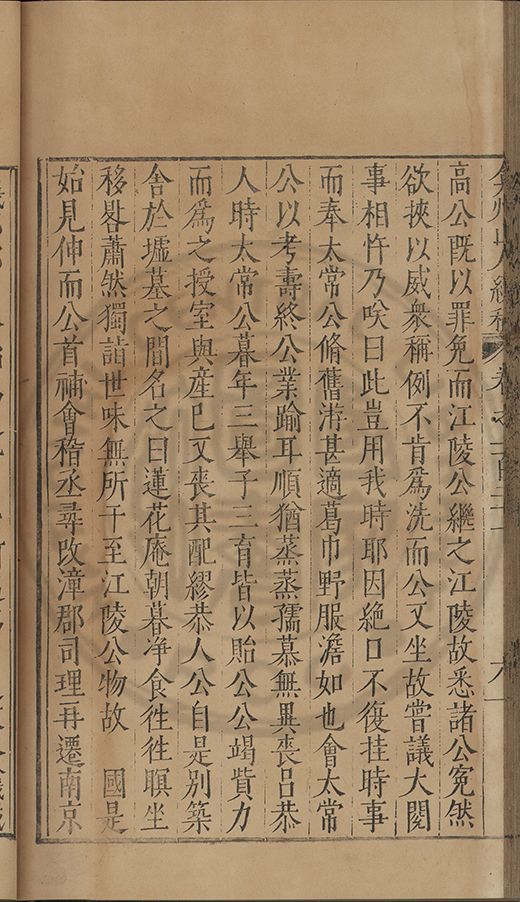 弇州山人續稿 卷之
高公旣以罪免而江陵公繼之江陵故悉諸公寃然
欲挾以威衆稱例不肯爲洗而公又坐故嘗議大閱
事相忤乃唉曰此豈用我時耶因絕口不復挂時事
而奉太常公脩舊游甚適葛巾野服澹如也會太常
公以考壽終公業踰耳順猶蒸蒸孺慕無異喪呂恭
人時太常公暮年三舉子三育皆以貽公公竭貲力
而爲之授室與產已又喪其配繆恭人公自是別築
舍於墟墓之間名之曰蓮花庵朝暮净食徃徃瞑坐
移晷蕭然獨詣世味無所干至江陵公物故　國是
始見伸而公首補會稽丞尋改漳郡司理再遷南京